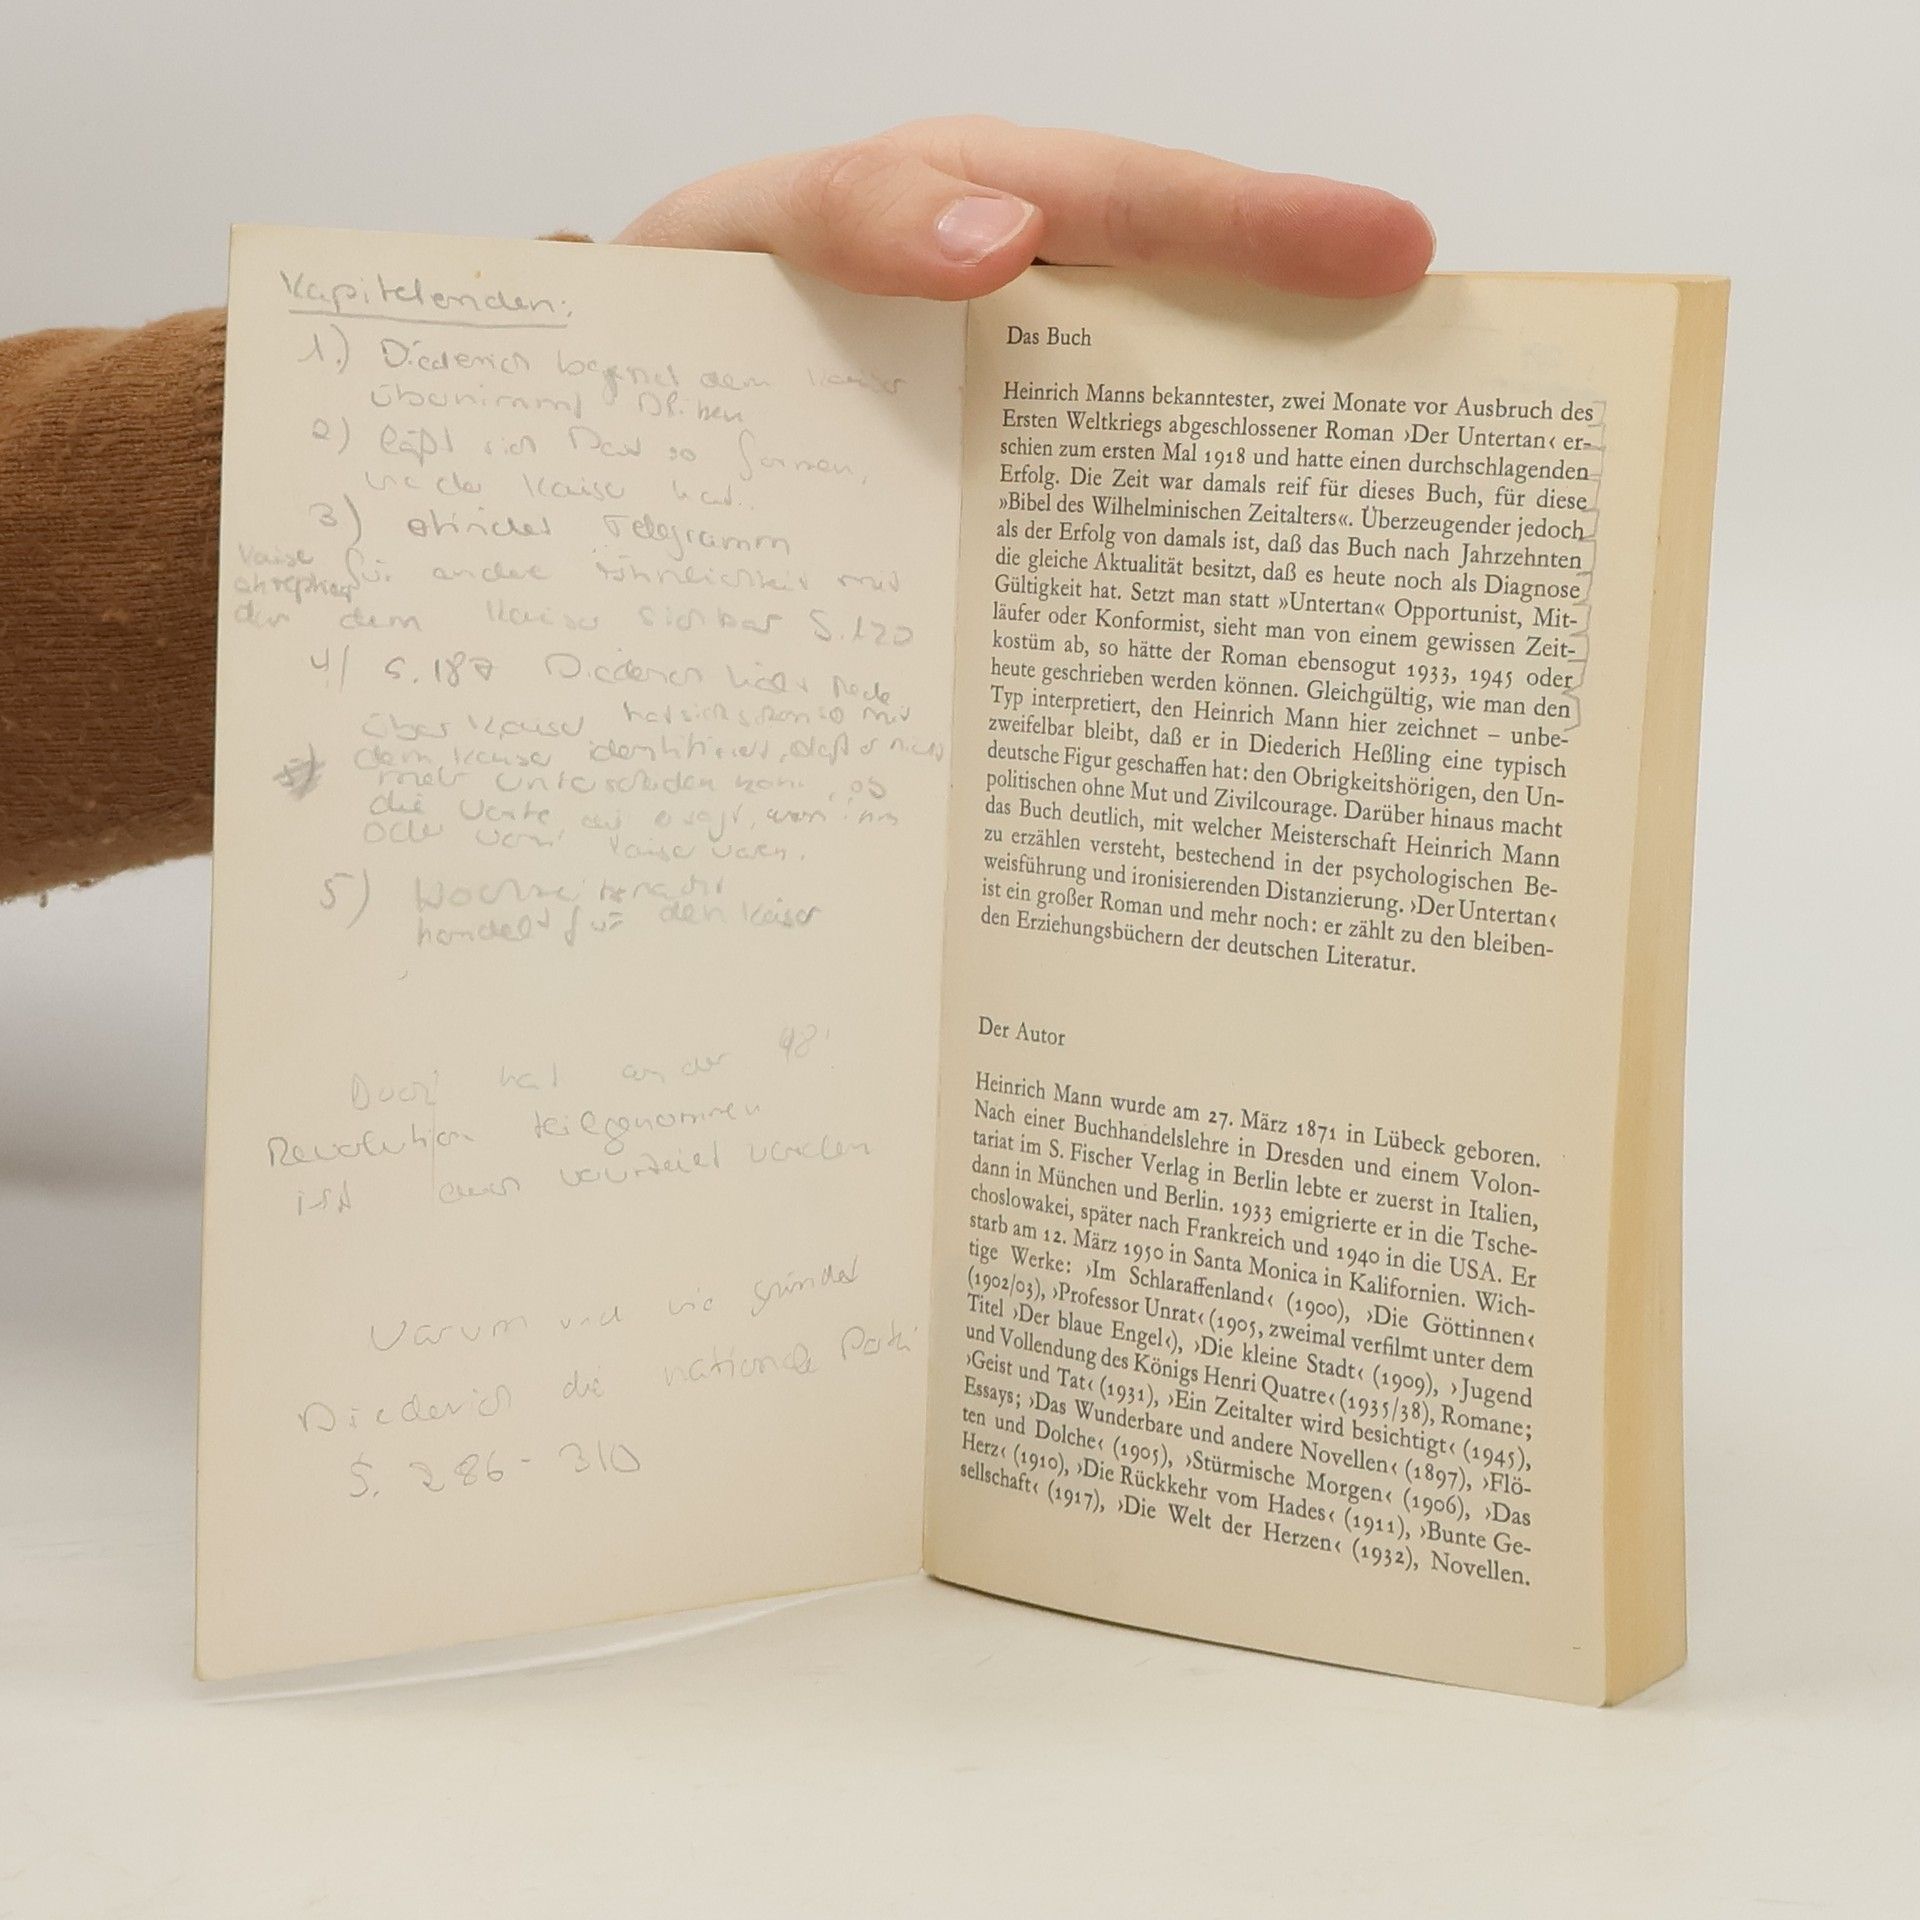 Kapitelenden:
1.) Diederich begegnet dem Kaiser
übernimmt
2) läßt sich Bart so formen,
wie der Kaiser hat.
3) Telegramm
Kaiser für andere Ähnlichkeit mit
dem Kaiser sichtbar S. 120
4) S. 187 Diederich hält Rede
über Kaiser hat sich schon so mit
dem Kaiser identifiziert, daß er nicht
5) mehr unterscheiden kann, ob
die Worte die er sagt, von ihm
oder vom Kaiser waren.
5) Hochzeitsnacht
handelt für den Kaiser
Buck hat an der 48'
Revolution teilgenommen
ist verurteilt worden
Warum und wie gründet
Diederich die nationale Partei
S. 286 - 310
Das Buch
Heinrich Manns bekanntester, zwei Monate vor Ausbruch des
Ersten Weltkriegs abgeschlossener Roman ›Der Untertan‹ er-
schien zum ersten Mal 1918 und hatte einen durchschlagenden
Erfolg. Die Zeit war damals reif für dieses Buch, für diese
»Bibel des Wilhelminischen Zeitalters«. Überzeugender jedoch
als der Erfolg von damals ist, daß das Buch nach Jahrzehnten
die gleiche Aktualität besitzt, daß es heute noch als Diagnose
Gültigkeit hat. Setzt man statt »Untertan« Opportunist, Mit-
läufer oder Konformist, sieht man von einem gewissen Zeit-
kostüm ab, so hätte der Roman ebensogut 1933, 1945 oder
heute geschrieben werden können. Gleichgültig, wie man den
Typ interpretiert, den Heinrich Mann hier zeichnet – unbe-
zweifelbar bleibt, daß er in Diederich Heßling eine typisch
deutsche Figur geschaffen hat: den Obrigkeitshörigen, den Un-
politischen ohne Mut und Zivilcourage. Darüber hinaus macht
das Buch deutlich, mit welcher Meisterschaft Heinrich Mann
zu erzählen versteht, bestechend in der psychologischen Be-
weisführung und ironisierenden Distanzierung. ›Der Untertan‹
ist ein großer Roman und mehr noch: er zählt zu den bleiben-
den Erziehungsbüchern der deutschen Literatur.
Der Autor
Heinrich Mann wurde am 27. März 1871 in Lübeck geboren.
Nach einer Buchhandelslehre in Dresden und einem Volon-
tariat im S. Fischer Verlag in Berlin lebte er zuerst in Italien,
dann in München und Berlin. 1933 emigrierte er in die Tsche-
choslowakei, später nach Frankreich und 1940 in die USA. Er
starb am 12. März 1950 in Santa Monica in Kalifornien. Wich-
tige Werke: ›Im Schlaraffenland‹ (1900), ›Die Göttinnen‹
(1902/03), ›Professor Unrat‹ (1905, zweimal verfilmt unter dem
Titel ›Der blaue Engel‹), ›Die kleine Stadt‹ (1909), ›Jugend
und Vollendung des Königs Henri Quatre‹ (1935/38), Romane;
›Geist und Tat‹ (1931), ›Ein Zeitalter wird besichtigt‹ (1945),
Essays; ›Das Wunderbare und andere Novellen‹ (1897), ›Flö-
ten und Dolche‹ (1905), ›Stürmische Morgen‹ (1906), ›Das
Herz‹ (1910), ›Die Rückkehr vom Hades‹ (1911), ›Bunte Ge-
sellschaft‹ (1917), ›Die Welt der Herzen‹ (1932), Novellen.